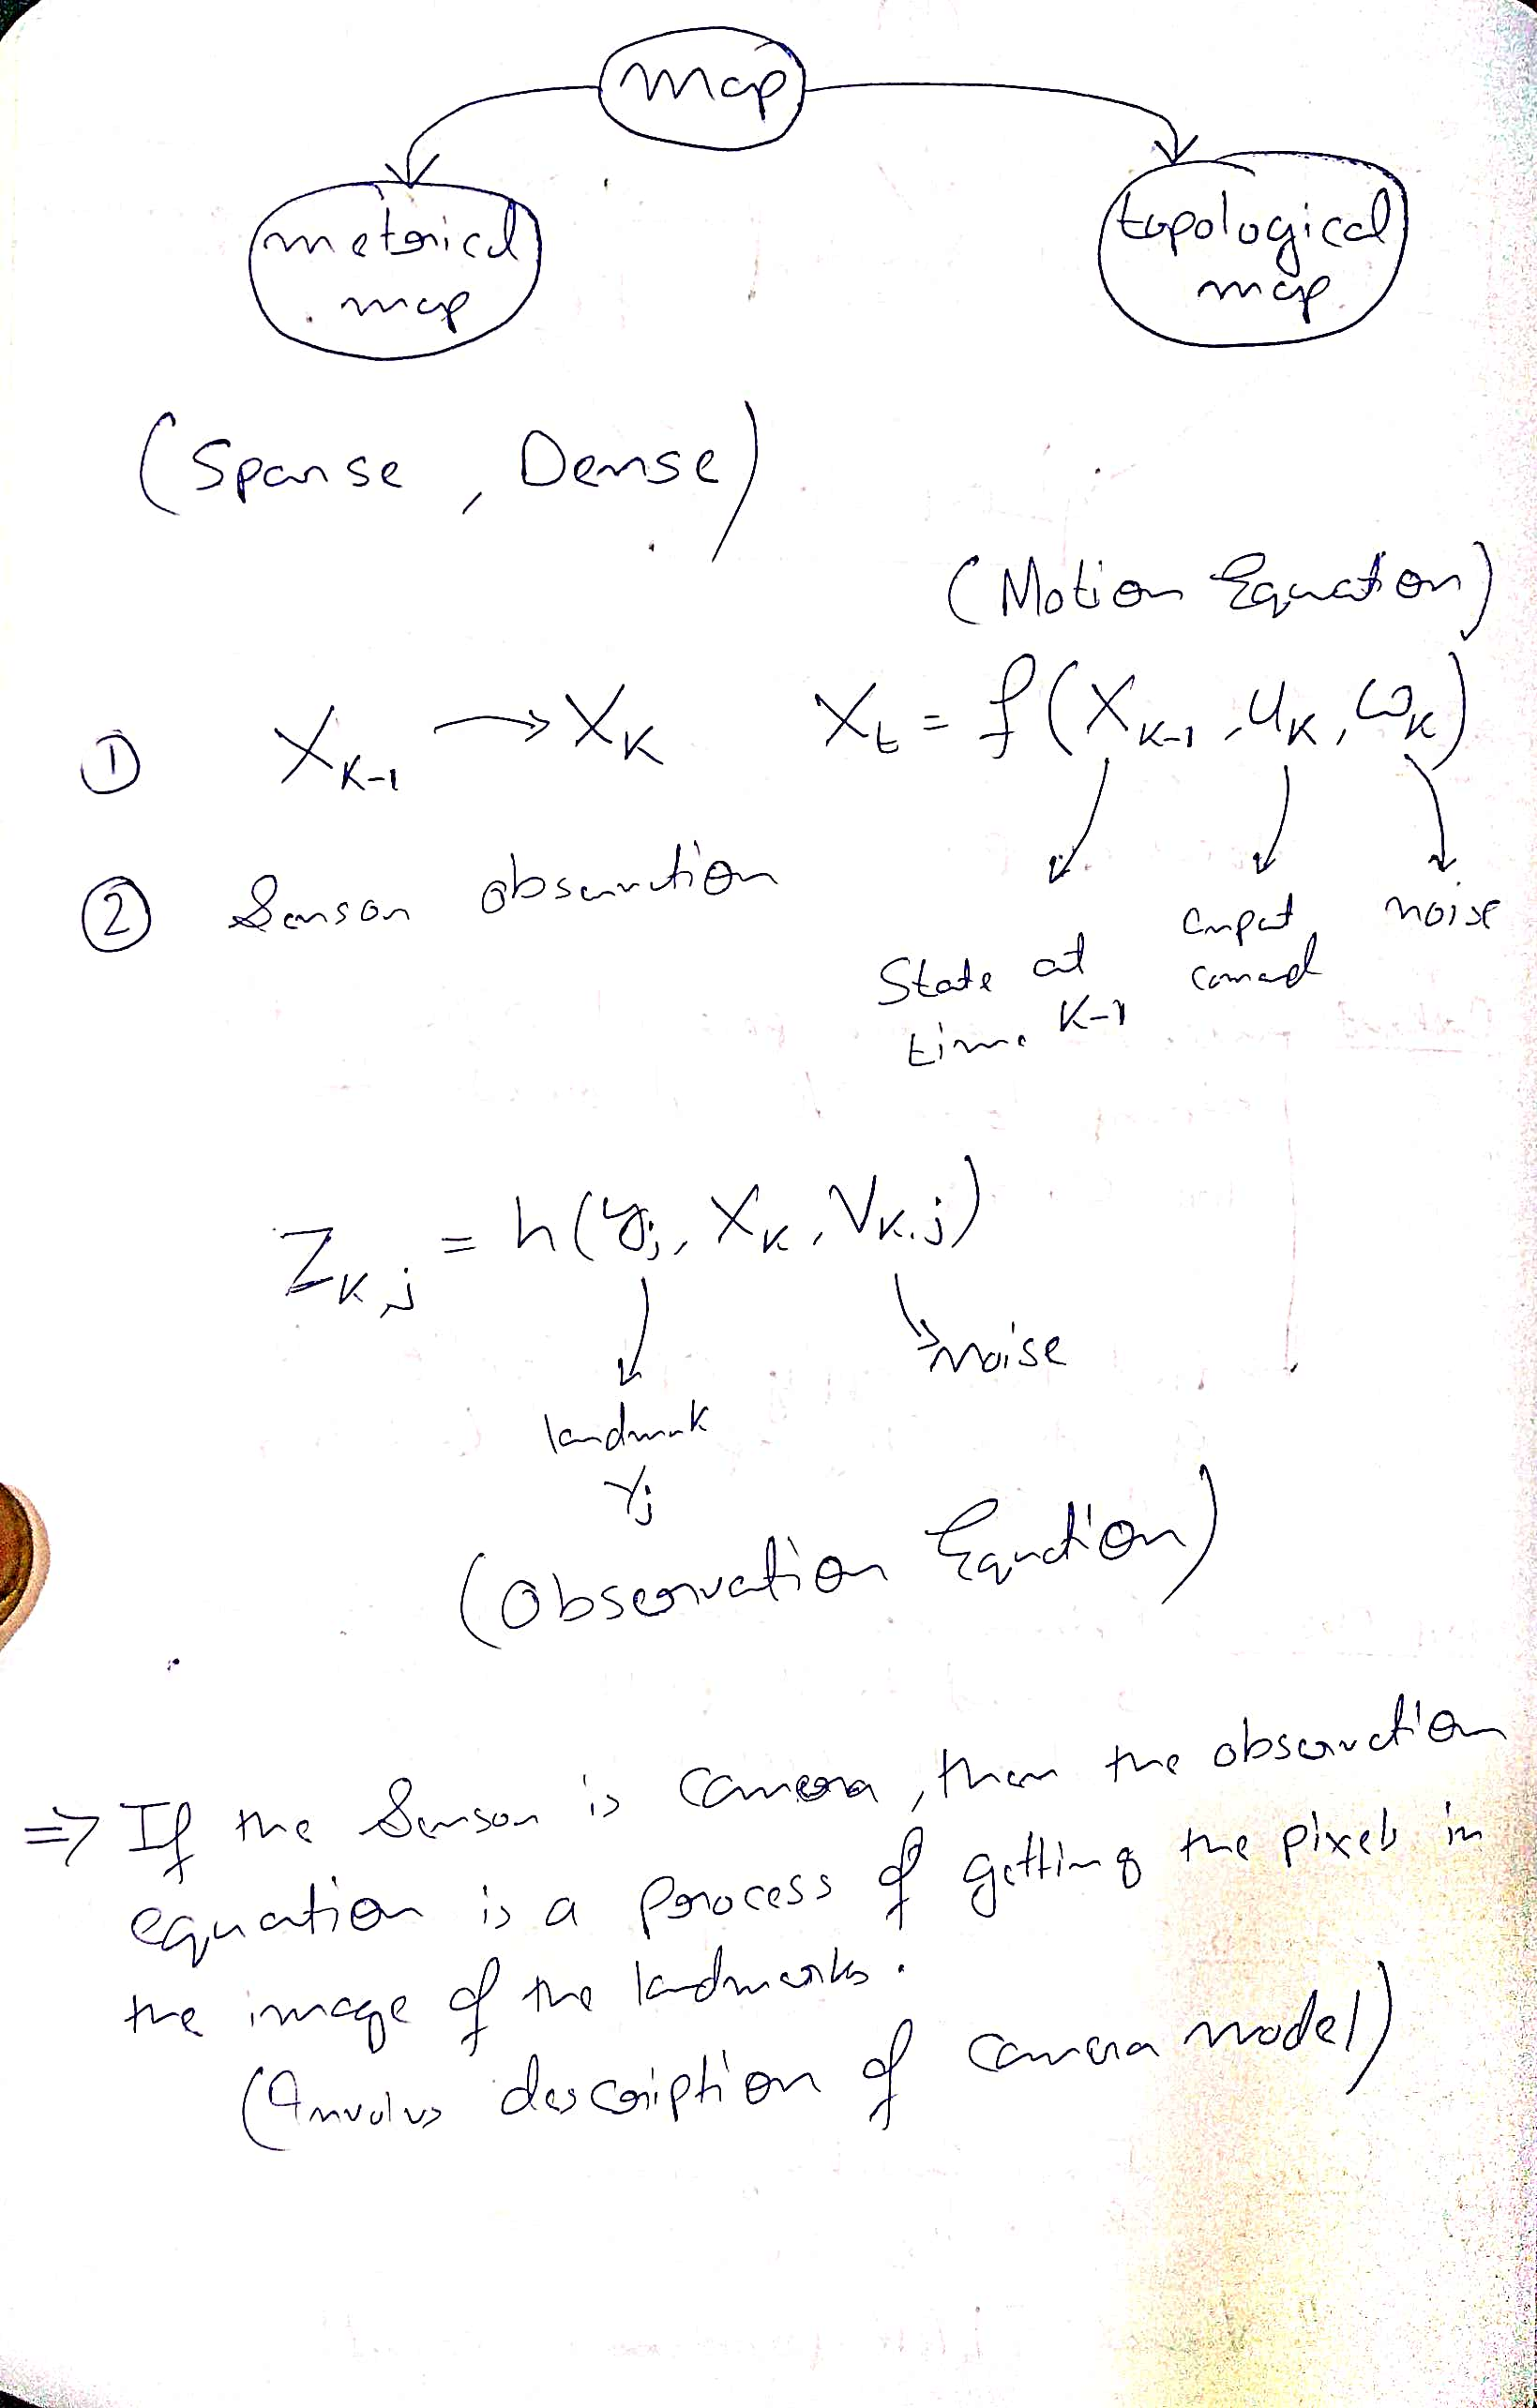 map
metrical
map
topological
map
(Sparse, Dense)
(Motion Equation)
① X_{K-1} → X_K
X_t = f(X_{K-1}, u_K, ω_K)
② Sensor observation
State at
time K-1
input
comand
noise
Z_{K,j} = h(y_j, X_K, V_{K,j})
landmark
Y_j
noise
(Observation Equation)
⇒ If the Sensor is camera, then the observation
equation is a process of getting the pixels in
the image of the landmarks.
(Involvs description of camera model)